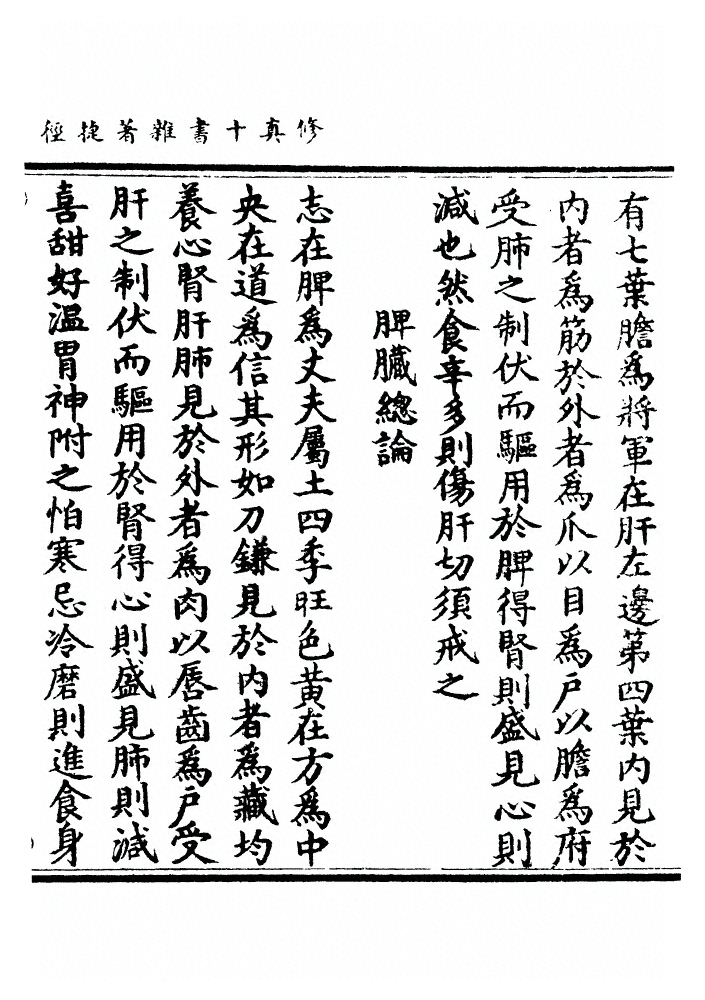 修真十書雜著捷徑
有七葉膽為將軍在肝左邊第四葉內見於
內者為筋於外者為爪以目為戶以膽為府
受肺之制伏而驅用於脾得腎則盛見心則
減也然食辛多則傷肝切須戒之
脾臟總論
志在脾為丈夫屬土四季旺色黃在方為中
央在道為信其形如刀鎌見於內者為藏均
養心腎肝肺見於外者為肉以唇齒為戶受
肝之制伏而驅用於腎得心則盛見肺則減
喜甜好溫胃神附之怕寒忌冷磨則進食身